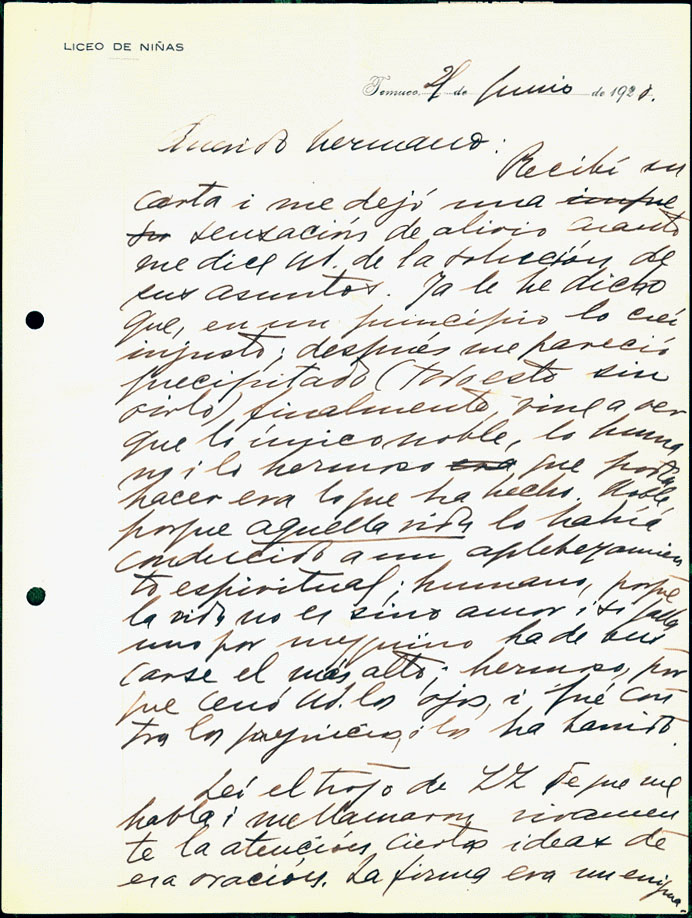 LICEO DE NIÑAS
Temuco, 21 de Junio de 1920.
Querido hermano:
Recibí su
carta i me dejó una impre
sensación de alivio cuanto
me dice Ud. de la solución de
sus asuntos. Ya le he dicho
que, en un principio lo creí
injusto; después me pareció
precipitado (todo esto sin
oirlo) finalmente, vine a ver
que lo único noble, lo huma
no i lo hermoso era que podía
hacer era lo que ha hecho. Noble
porque aquella vida lo había
conducido a un aplebeyamien
to espiritual; humano, porque
la vida no es sino amor i si falla
uno por mezquino ha de bus
carse el más alto; hermoso, por
que cerró Ud. los ojos, i fué con
tra los prejuicios, i los ha barrido.
Leí el trozo de ZZ de que me
habla i me llamaron vivamen
te la atención ciertas ideas de
esa oración. La firma era un enigma.